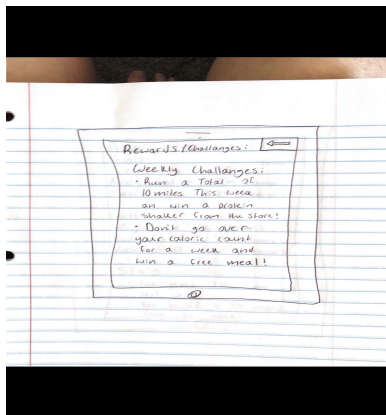 Rewards/Challanges:
Weekly Challanges:
• Run a Total of
10 miles This week
an win a protein
shaker from the store!
• Don't go over
your calorie count
for a week and
win a free meal!